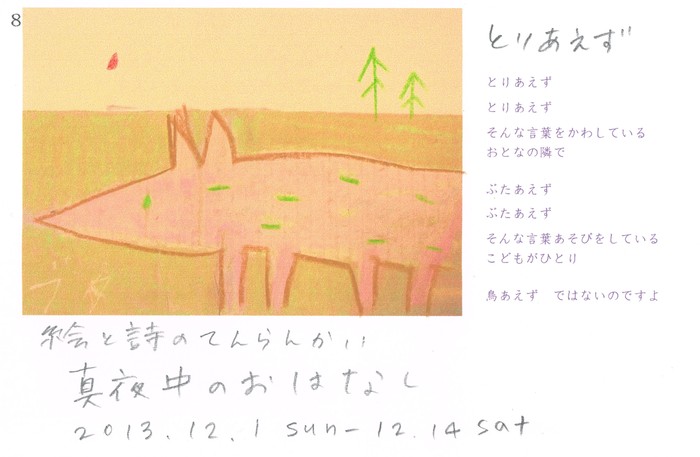 8
ブタ
とりあえず
とりあえず
とりあえず
そんな言葉をかわしている
おとなの隣で
ぶたあえず
ぶたあえず
そんな言葉あそびをしている
こどもがひとり
鳥あえず　ではないのですよ
絵と詩のてんらんかい
真夜中のおはなし
2013.12.1 sun－12.14 sat